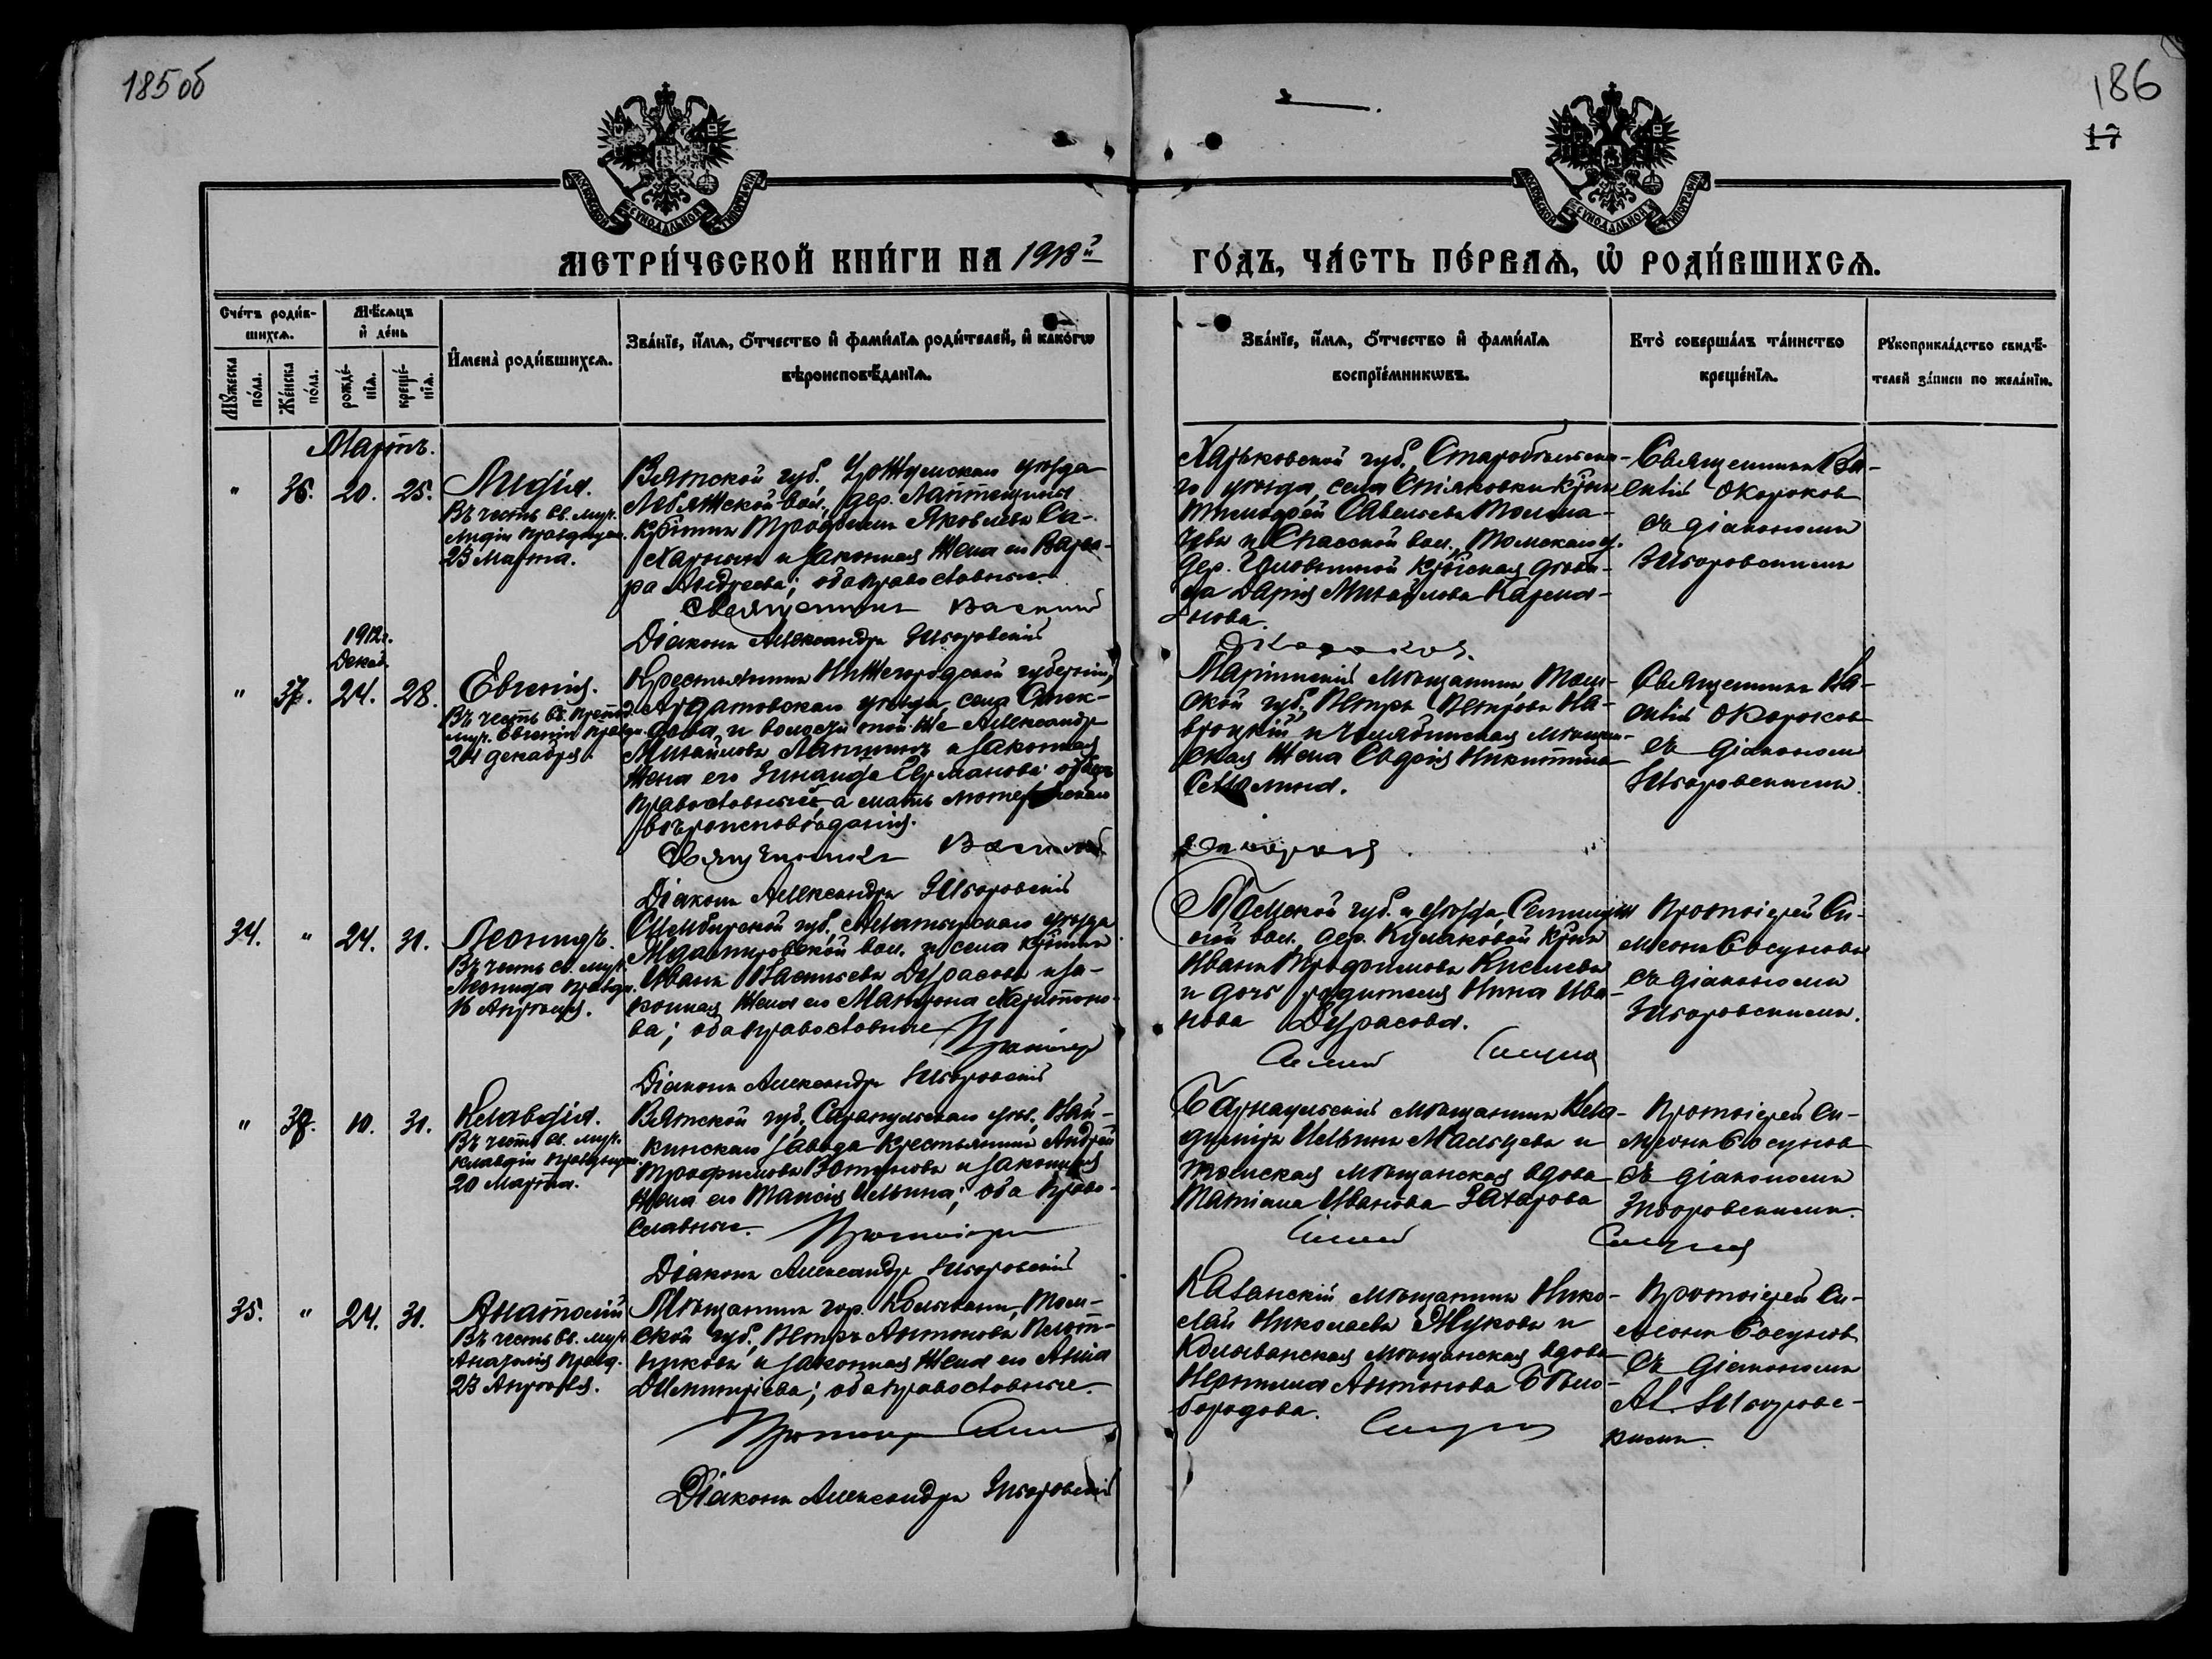 185 об
186
17
МОСКОВСКОЙ СѴНОДАЛЬНОЙ ТИПОГРАФІИ
МОСКОВСКОЙ СѴНОДАЛЬНОЙ ТИПОГРАФІИ
МЕТРИ́ЧЕСКОЙ КНИ́ГИ НА 1913й
ГО́ДЪ, ЧА́СТЬ ПЕ́РВАѦ, Ѡ҆ РОДИ́ВШИХСѦ.
Сче́тъ роди́в-
шихсѧ.
Мꙋ́жеска по́ла.
Же́нска по́ла.
Мѣ́сѧцъ
и҆ де́нь
рожде́-
нїѧ.
креще́-
нїѧ.
И҆мена̀ роди́вшихсѧ.
Зва́нїе, и҆́мѧ, ѻ҆́тчество и҆ фами́лїѧ роди́телей, и҆ како́гѡ
вѣроисповѣ́данїѧ.
Зва́нїе, и҆́мѧ, ѻ҆́тчество и҆ фами́лїѧ
воспрїе́мникѡвъ.
Кто̀ соверша́лъ та́инство
креще́нїѧ.
Рꙋкоприкла́дство свидѣ́-
телей за́писи по жела́нїю.
Мартъ.
" 36. 20. 25.
Лидія.
Въ честь св. муч.
Лидіи празднуем.
23 Марта.
Вятской губ., Уржумскаго уѣзда
Лебяжской вол., дер. Лаптещина
кр-нинъ Трофимъ Яковлевъ Са-
харныхъ и законная жена его Варва-
ра Андреева; оба православные.
Священникъ Василій
Діаконъ Александръ Згоровскій
Харьковской губ., Старобѣльска-
го уѣзда, села
Тимофей Савельевъ
и Спасской вол., Томскаго у.
дер. кр-нская дѣви-
ца Дарія Михайлова
Окороковъ.
Священникъ Ва-
силій Окороковъ
съ діакономъ
Згоровскимъ
1912 г.
Декаб.
" 37. 24. 28.
Евгенія.
Въ честь св. препод.
муч. Евгеніи праздн.
24 декабря.
Крестьянинъ Нижегородской губерніи,
Ардатовскаго уѣзда, села
и волости той же Александръ
Михайловъ Лапшинъ и законная
жена его Зинаида Германова; отецъ
православный, а мать лютеранскаго
вѣроисповѣданія.
Священникъ Василій
Діаконъ Александръ Згоровскій
Маріинскій мѣщанинъ Том-
ской губ. Петръ Петровъ На-
вроцкій и Челябинская мѣщан-
ская жена Евдокія Никитина
Окороковъ
Священникъ Ва-
силій Окороковъ
съ діакономъ
Згоровскимъ.
34. " 24. 31.
Леонидъ.
Въ честь св. муч.
Леонида праздн.
16 Апрѣля.
Симбирской губ., Алатырскаго уѣзда
вол. и села кр-нинъ
Иванъ Васильевъ Дерасовъ и за-
конная жена его Матрона Харитоно-
ва; оба православные.
Протоіерей
Діаконъ Александръ Згоровскій
Томской губ. и уѣзда, Семилуж-
ной вол., дер. Кулаковой кр-нинъ
Иванъ Трофимовъ Киселевъ
и дочь родителя Нина Ива-
нова Дерасова.
Симеонъ Сосуновъ
Протоіерей Си-
меонъ Сосуновъ
съ діакономъ
Згоровскимъ.
" 38. 10. 31.
Клавдія.
Въ честь св. муч.
Клавдіи празднуем.
20 Марта.
Вятской губ., Сарапульскаго уѣз., Вот-
кинскаго завода крестьянинъ Андрей
Трофимовъ и законная
жена его Таисія Ильина; оба право-
славные. Протоіерей
Діаконъ Александръ Згоровскій
Барнаульскій мѣщанинъ Вла-
диміръ Ильинъ Мальцевъ и
томская мѣщанская вдова
Татіана Иванова Захарова
Симеонъ Сосуновъ
Протоіерей Си-
меонъ Сосуновъ
съ діакономъ
Згоровскимъ.
35. " 24. 31.
Анатолій
Въ честь св. муч.
Анатолія праздн.
23 Апрѣля.
Мѣщанинъ гор. Колывани, Том-
ской губ., Петръ Антоновъ Плот-
никовъ и законная жена его Анна
Димитріева; оба православные.
Протоіерей Симеонъ
Діаконъ Александръ Згоровскій
Казанскій мѣщанинъ Нико-
лай Николаевъ Жуковъ и
Колыванская мѣщанская вдова
Неонила Антонова Бѣло-
бородова.
Сосуновъ
Протоіерей Си-
меонъ Сосуновъ
съ діакономъ
Ал. Згоровс-
кимъ.